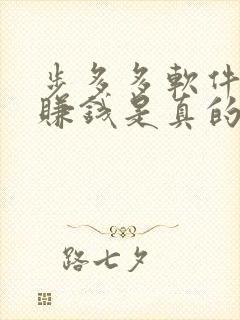 步多多軟件
賺錢是真的
路七夕